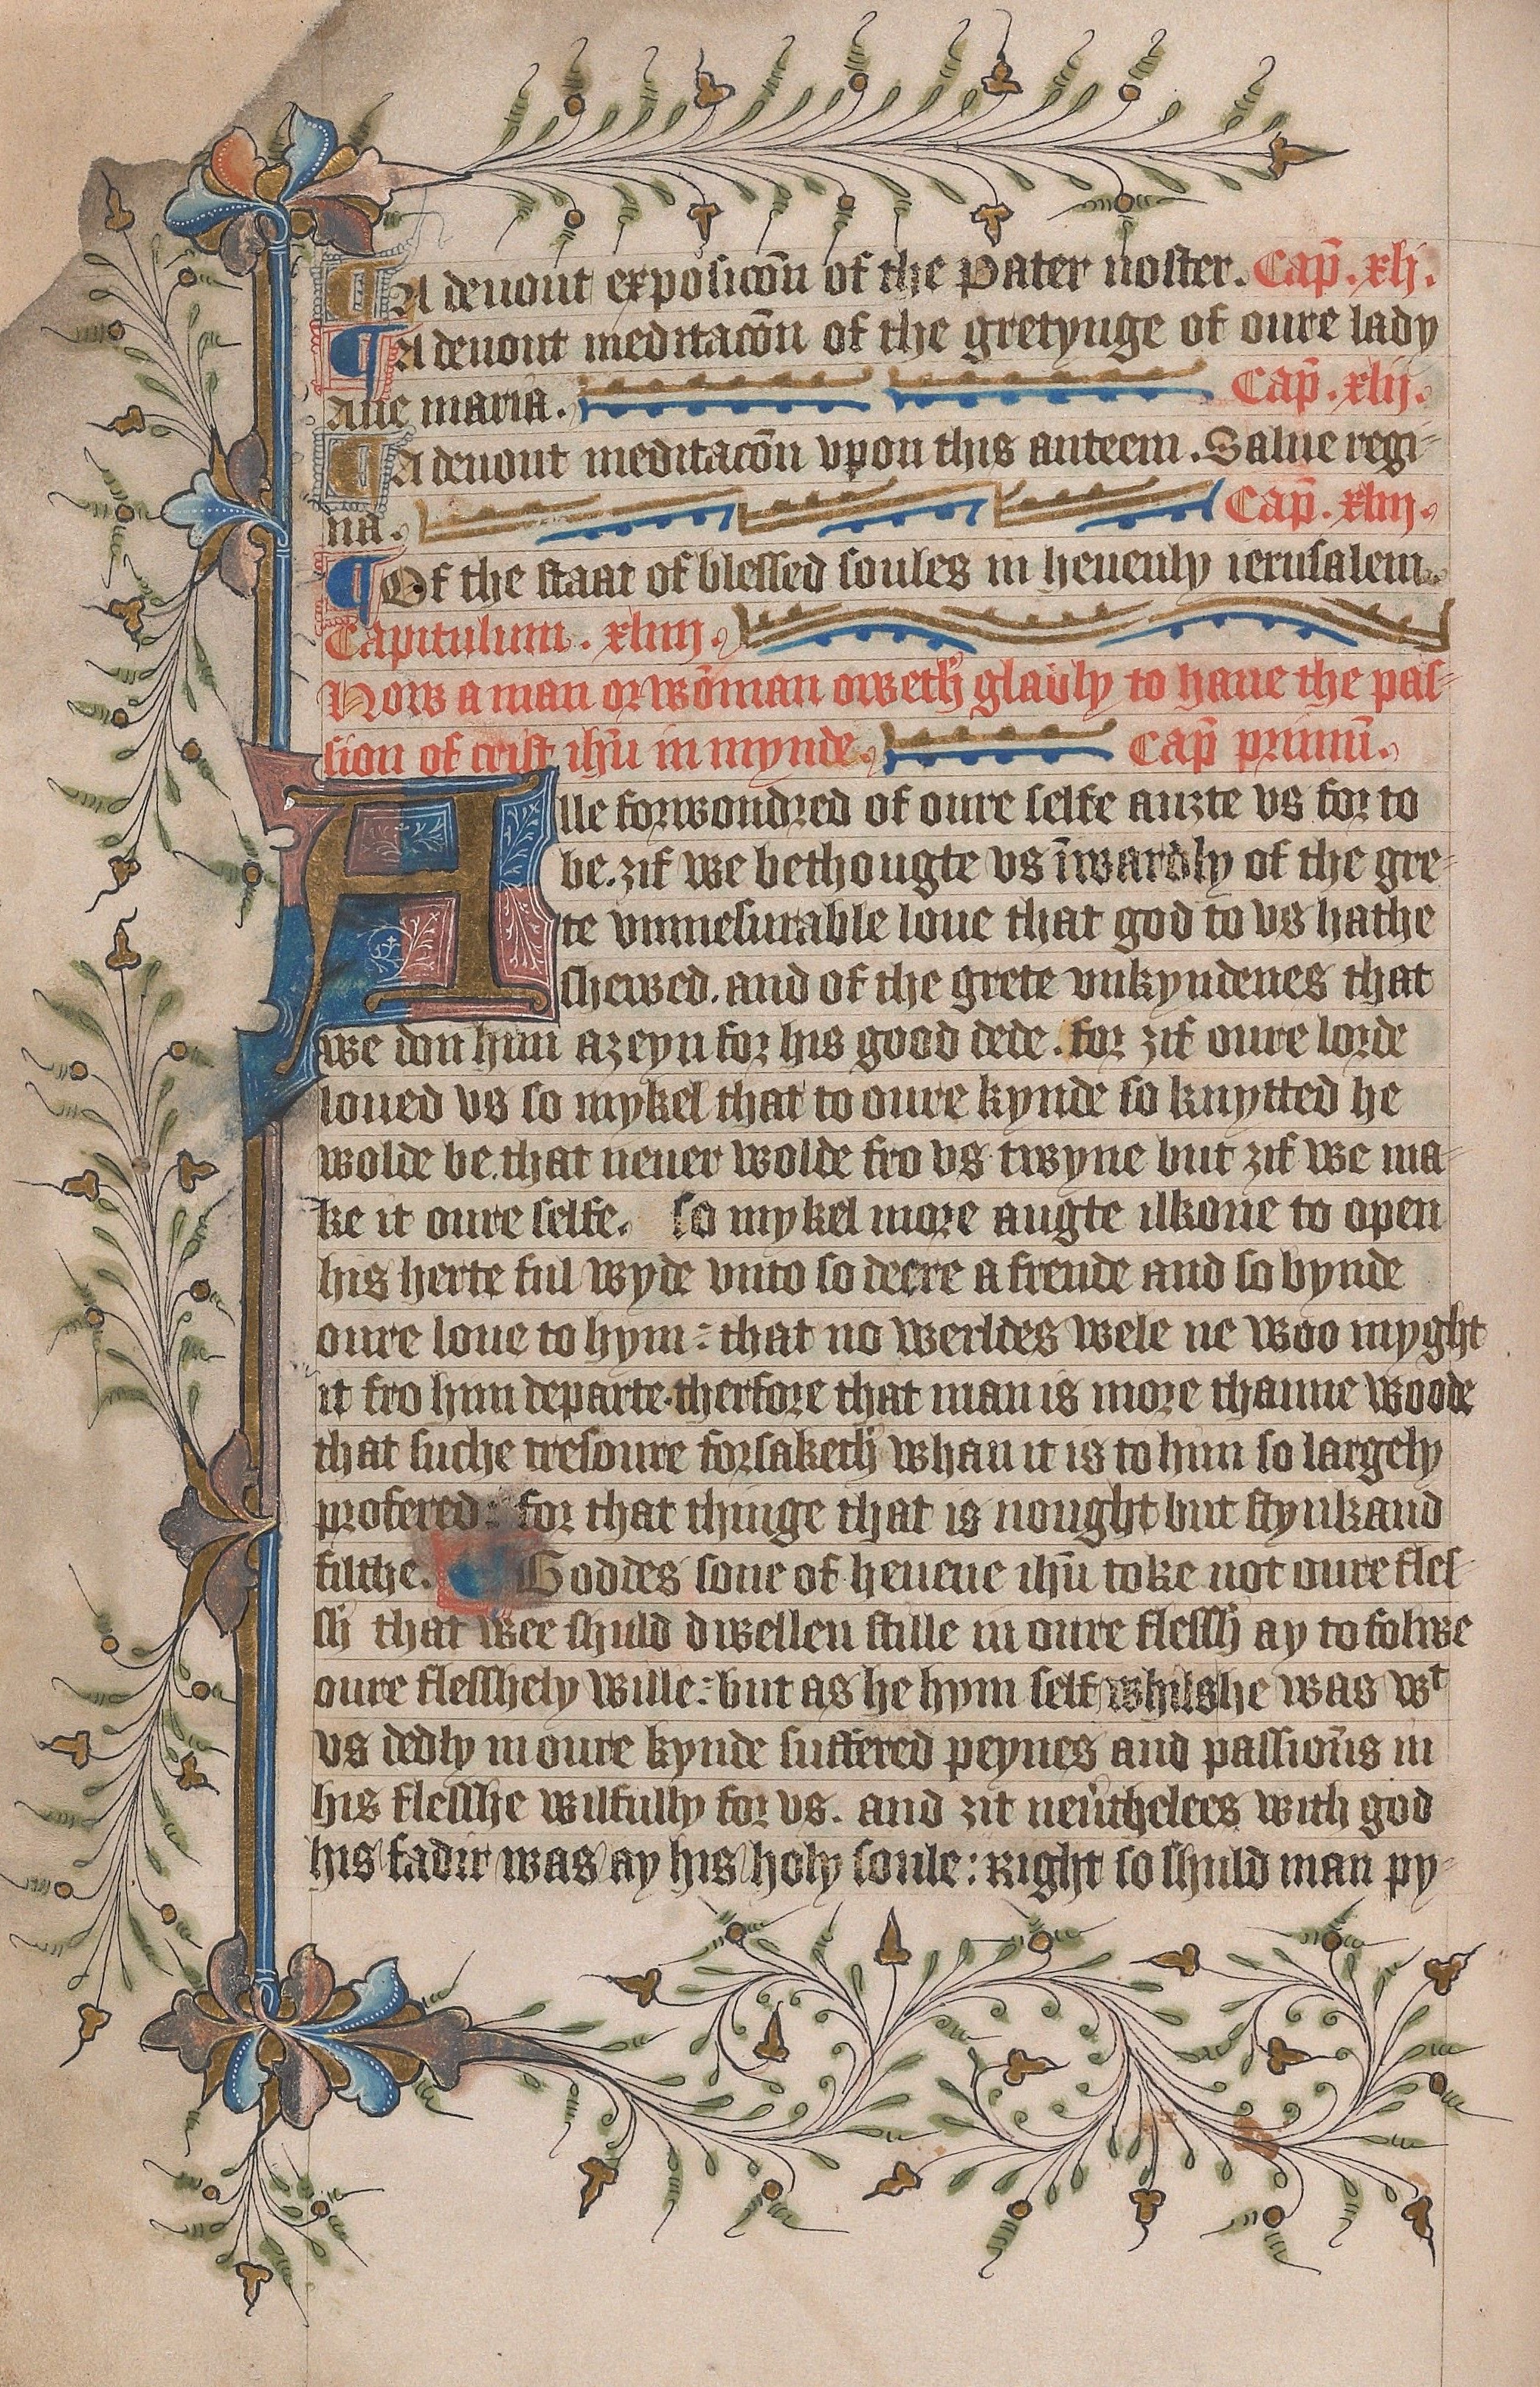 ¶ A deuout exposicōn of the Pater noster. Cap̄. xlj.
¶ A deuout meditacōn of the gretynge of oure lady
aue maria. Cap̄. xlij.
¶ A deuout meditacōn vpon this anteem. Salue regi-
na. Cap̄. xliij.
¶ Of the staat of blessed soules in heuenly ierusalem.
Capitulum. xliiij.
How a man or wōman oweth gladly to haue the pas-
sion of crist ihū in mynde. Cap̄ primū.
Alle forwondred of oure selfe auȝte vs for to
be. ȝif we bethougte vs īwardly of the gre-
te vnmesurable loue that god to vs hathe
shewed. and of the grete vnkyndenes that
we don him aȝeyn for his good dede. for ȝif oure lorde
loued vs so mykel that to oure kynde so knytted he
wolde be. that neuer wolde fro vs twyne but ȝif we ma-
ke it oure selfe. so mykel more augte ilkone to open
his herte ful wyde vnto so deere a frende and so bynde
oure loue to hym: that no werldes wele ne woo myght
it fro him departe. therfore that man is more thanne woode
that suche tresoure forsaketh whan it is to him so largely
profered: for that thinge that is nought but stynkand
filthe. ¶ Goddes sone of heuene ihū toke not oure fles-
sh that wee shuld dwellen stille in oure flessh ay to folwe
oure flesshely wille: but as he hym self whils he was wᵗ
vs dedly in oure kynde suffered peynes and passiōns in
his flesshe wilfully for vs. and ȝit neu̓thelees with god
his fadir was ay his holy soule: Right so shuld man py-